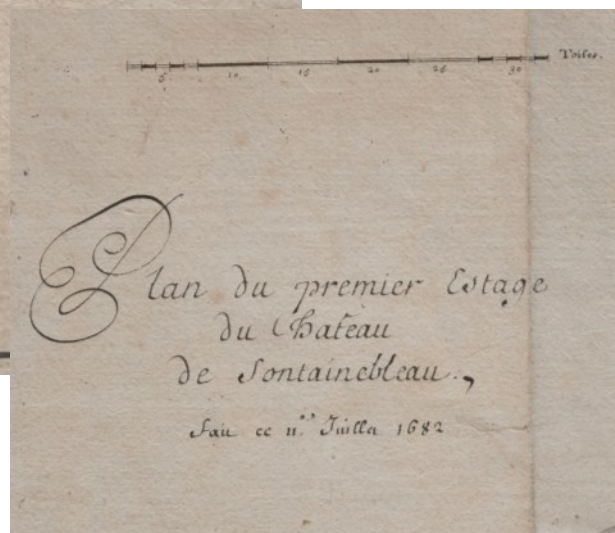 5 10 15 20 25 30 Toises.
Plan du premier Estage
du Chateau
de Fontainebleau.,
Fait ce 11.e Juillet 1682